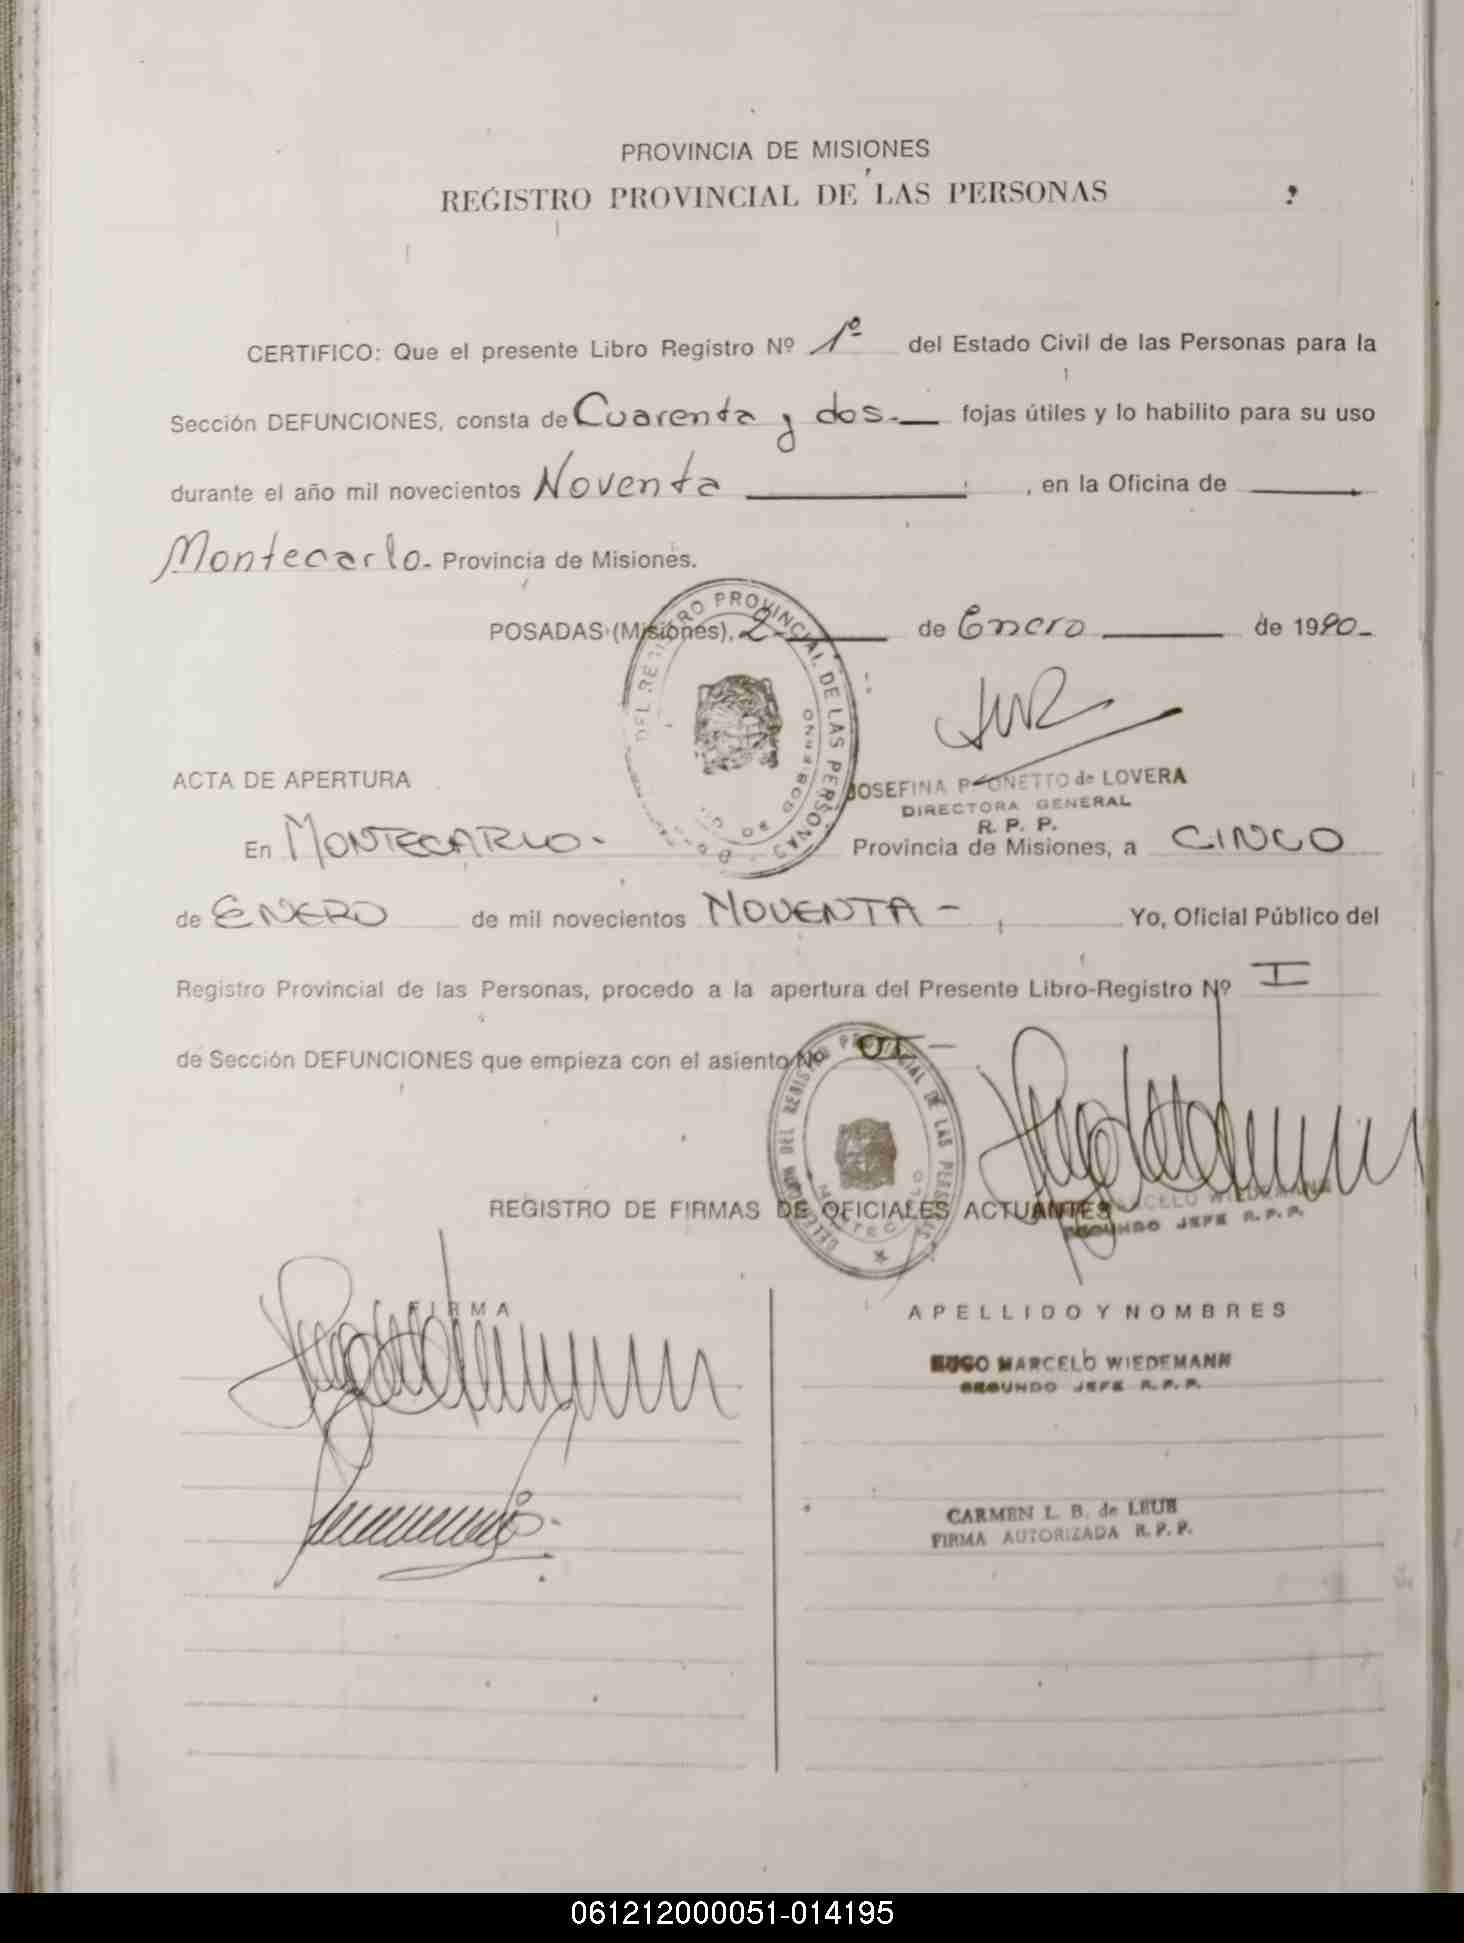 PROVINCIA DE MISIONES
REGISTRO PROVINCIAL DE LAS PERSONAS
CERTIFICO: Que el presente Libro Registro Nº 1º del Estado Civil de las Personas para la
Sección DEFUNCIONES, consta de Cuarenta y dos.— fojas útiles y lo habilito para su uso
durante el año mil novecientos Noventa ——— , en la Oficina de ———
Montecarlo. Provincia de Misiones.
POSADAS (Misiones), 2 — de Enero — de 1990.
DEL REGISTRO PROVINCIAL DE LAS PERSONAS
JOSEFINA de LOVERA
DIRECTORA GENERAL
R. P. P.
ACTA DE APERTURA
En MONTECARLO. Provincia de Misiones, a CINCO
de ENERO de mil novecientos NOVENTA - , Yo, Oficial Público del
Registro Provincial de las Personas, procedo a la apertura del Presente Libro-Registro Nº I
de Sección DEFUNCIONES que empieza con el asiento No 01 —
DEL REGISTRO PROVINCIAL DE LAS PERSONAS
MONTECARLO
MARCELO WIEDEMANN
SEGUNDO JEFE R.P.P.
REGISTRO DE FIRMAS DE OFICIALES ACTUANTES
FIRMA APELLIDO Y NOMBRES
HUGO MARCELO WIEDEMANN
SEGUNDO JEFE R.P.P.
CARMEN L. B. de LEUB
FIRMA AUTORIZADA R. P. P.
061212000051-014195